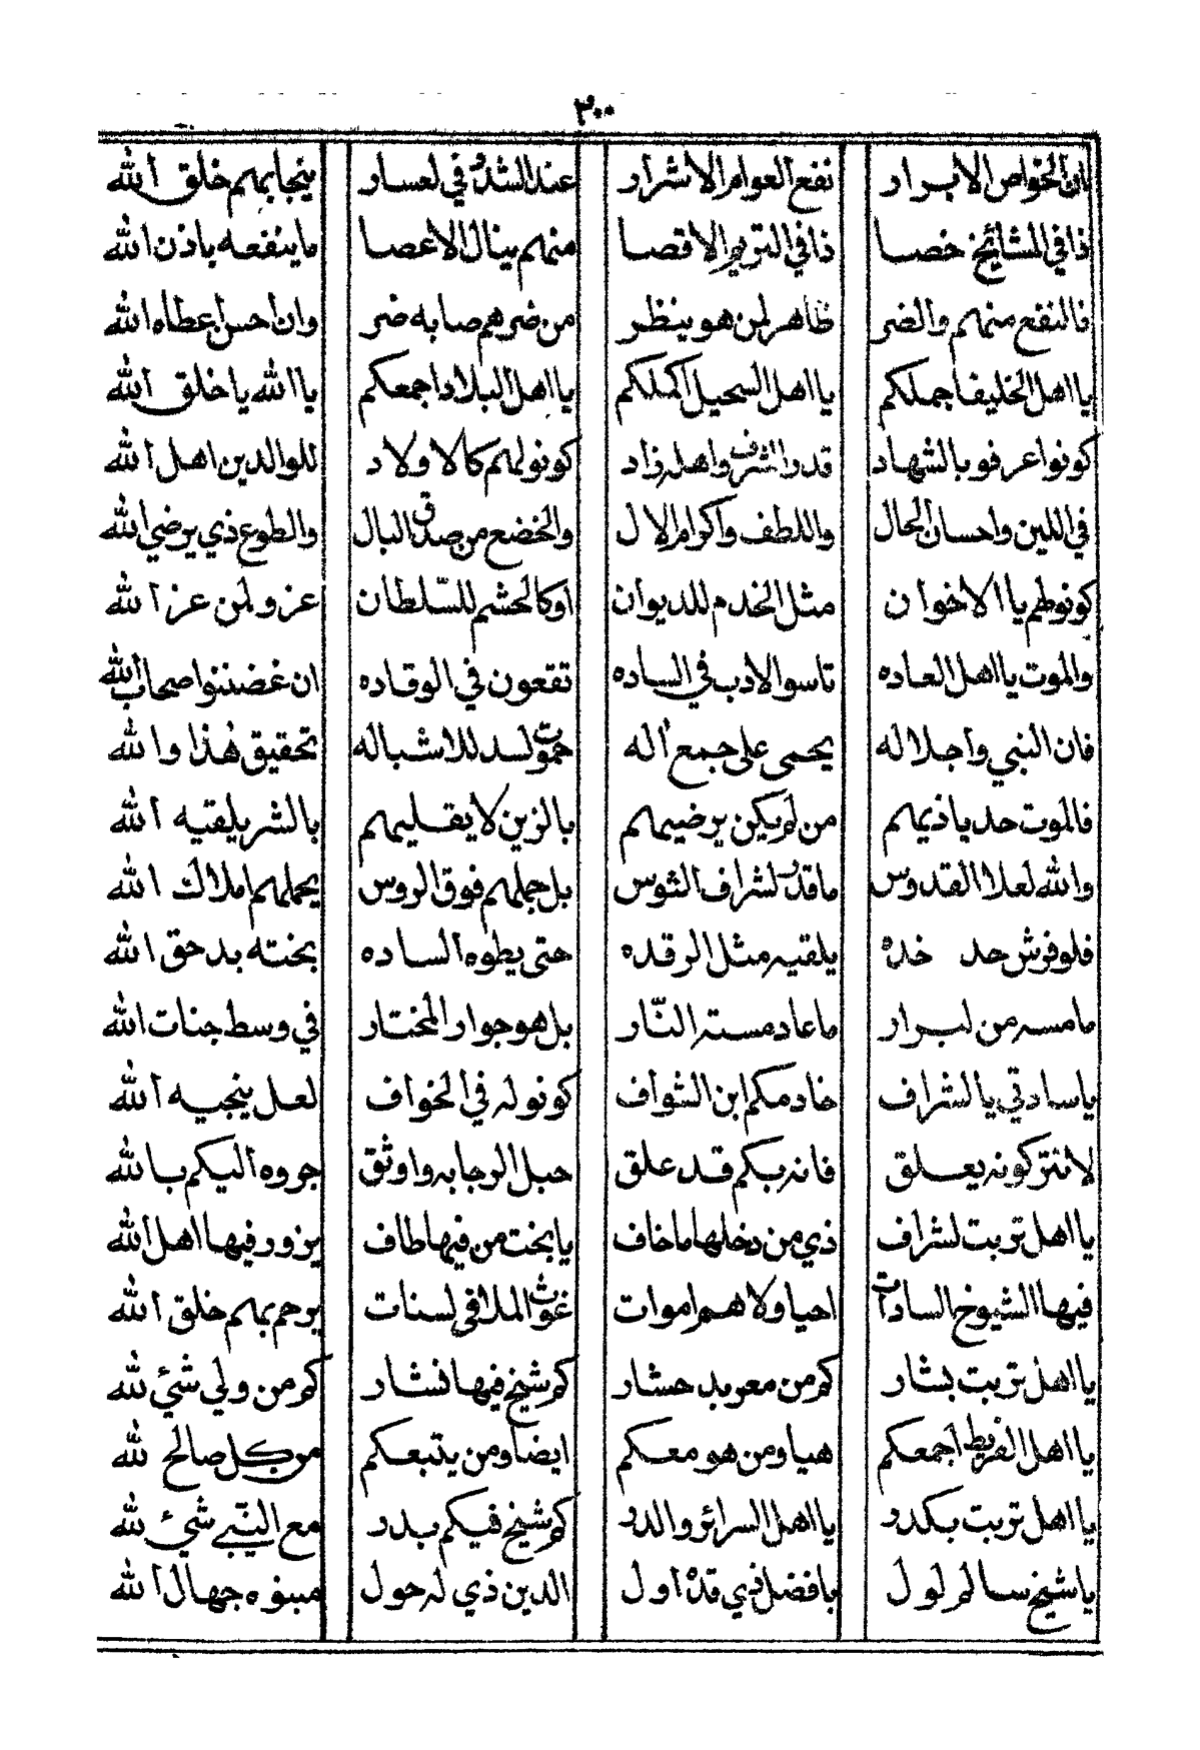 ٣٠٠
بان الخواص الابرار نفع العوام الاشرار عند الشد في لعسار ينجا بهم خلق الله
ذا في المشائخ خصا ذا في التريم الاقصا منهم ينال الاعصا ما ينفعه باذن الله
فالنفع منهم والضر ظاهر لمن هو ينظر من ضرهم صابه ضر وان احسن اعطاه الله
يا اهل الخليفا جملكم يا اهل السحيل اكملكم يا اهل البلاد اجمعكم يا الله يا خلق الله
كونوا عرفو بالشهاد قدر الشرف واهله زاد كونو لهم كالاولاد للوالدين اهل الله
في اللين واحسان الحال واللطف واكرام الال والخضع من صدق البال والطوع ذي يرضي الله
كونو لهم يا الاخوان مثل الخدم للديوان اوكالحشم للسلطان عز ولمن عز الله
والموت يا اهل العاده تاسو الادب في الساده تقعون في الوقاده ان غضبتوا صحاب الله
فان النبي واجلاله يحمى على جمع اله حموت لسد للاشباله تحقيق هذا والله
فالموت حد ياذيهم من لم يكن يرضيهم بالزين لا يقليهم بالشر يلقيه الله
والله لعلا القدوس ما قدر لشراف الشوس بل جملهم فوق الروس يحملهم املاك الله
فلو فرش حد خده يلقيه مثل الرقده حتى يطوه الساده بخته بد حق الله
ما مسه من لبرار ما عاد مسته النّار بل هو جوار المختار في وسط جنات الله
يا سادتي يا لشراف خادمكم ابن الشواف كونو له في الخواف لعل ينجيه الله
لا تتركونه يعلق فانه بكم قد علق حبل الرجا به واوثق جروه اليكم بالله
يا اهل تربت لشراف ذي من دخلها ما خاف يا بخت من فيها طاف يزور فيها اهل الله
فيها الشيوخ السادات احيا ولا هم اموات غوث الملا في لسنات يرحم بهم خلق الله
يا اهل تربت بشار كم من معربد حشار كم شيخ فيها نشار كم من ولي شئ لله
يا اهل الفريط اجمعكم هيا ومن هو معكم ايضا ومن يتبعكم من كل صالح لله
يا اهل تربت بكدر يا اهل السرائر والدر كم شيخ فيكم بدر مع النبي شئ لله
يا شيخ سالم لول بافضل ذي قده اول الدين ذي له حول جهال الله